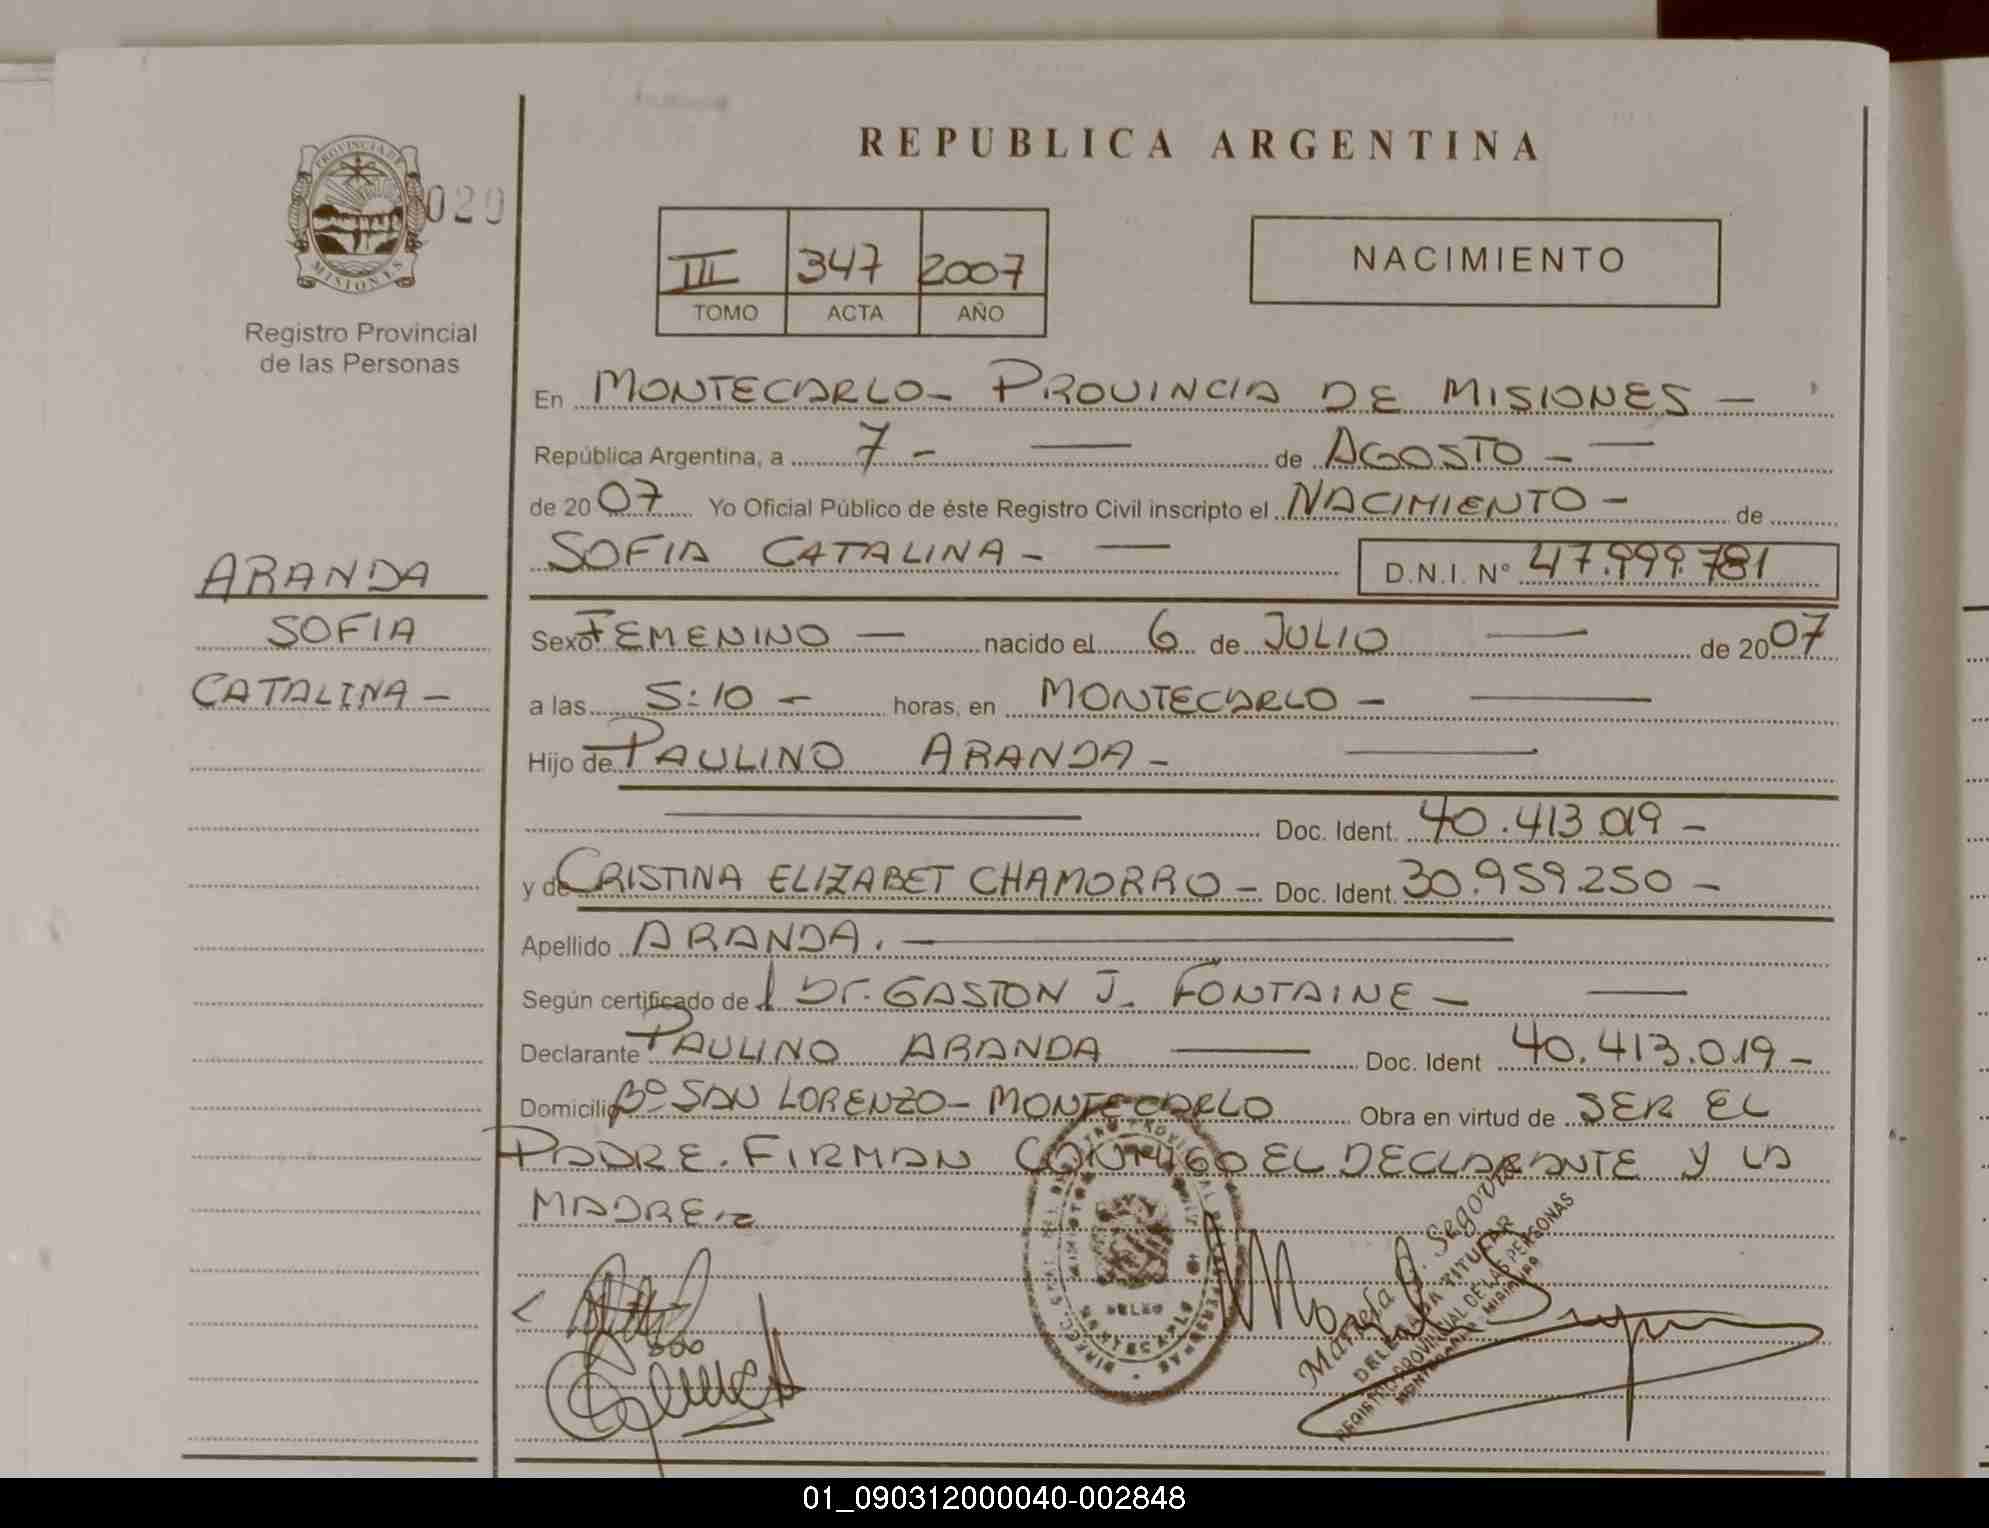 REPUBLICA ARGENTINA
PROVINCIA DE
MISIONES
020
Registro Provincial
de las Personas
III 347 2007
TOMO ACTA AÑO
NACIMIENTO
En MONTECARLO- PROVINCIA DE MISIONES -
República Argentina, a 7 - de AGOSTO -
de 2007 Yo Oficial Público de éste Registro Civil inscripto el NACIMIENTO - de
SOFIA CATALINA - D.N.I. N° 47.999.781
ARANDA
SOFIA
CATALINA -
Sexo FEMENINO - nacido el 6 de JULIO de 2007
a las 5:10 - horas, en MONTECARLO -
Hijo de PAULINO ARANDA -
Doc. Ident. 40.413.019 -
y de CRISTINA ELIZABET CHAMORRO - Doc. Ident. 30.959.250 -
Apellido ARANDA.
Según certificado de Dr. GASTON J. FONTAINE -
Declarante PAULINO ARANDA Doc. Ident 40.413.019 -
Domicilio Bº SAN LORENZO - MONTECARLO Obra en virtud de SER EL
PADRE. FIRMAN CONMIGO EL DECLARANTE Y LA
MADRE.-
Segovia
DELEGADA TITULAR
REGISTRO PROVINCIAL DE LAS PERSONAS
01_090312000040-002848